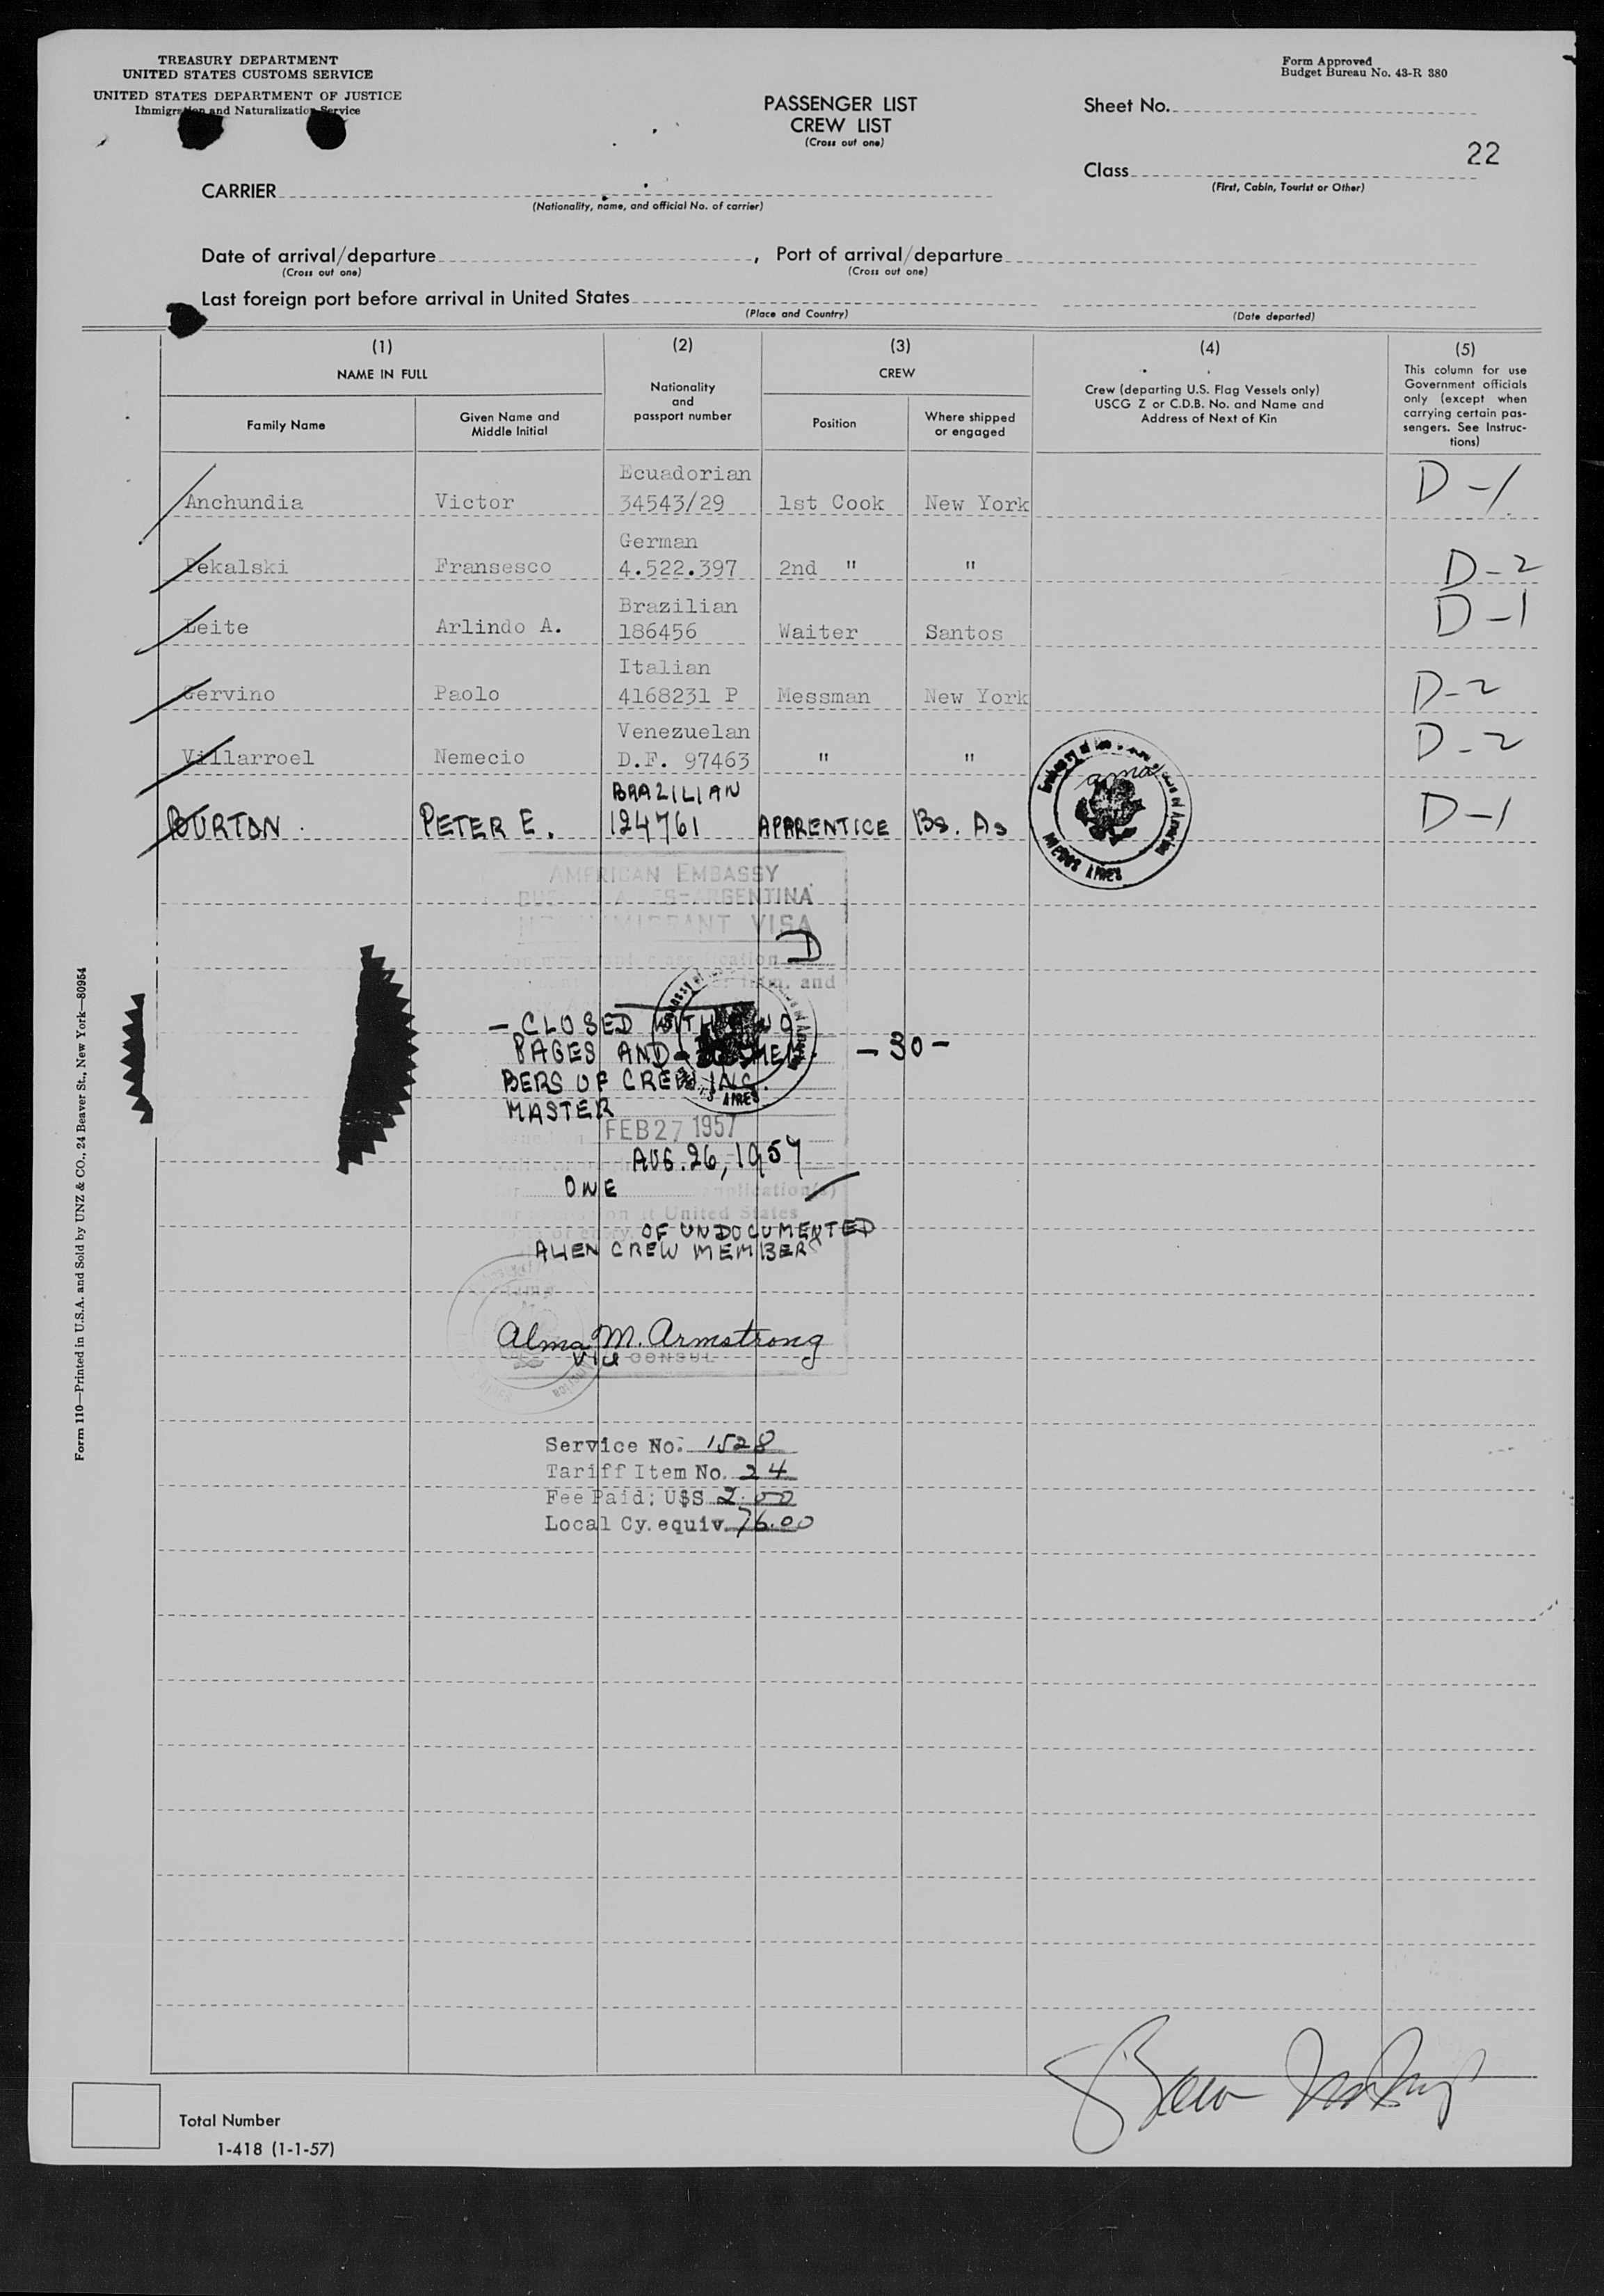 TREASURY DEPARTMENT
UNITED STATES CUSTOMS SERVICE
UNITED STATES DEPARTMENT OF JUSTICE
Immigration and Naturalization Service
Form Approved
Budget Bureau No. 43-R 380
PASSENGER LIST
CREW LIST
(Cross out one)
Sheet No.
22
Class
(First, Cabin, Tourist or Other)
CARRIER
(Nationality, name, and official No. of carrier)
Date of arrival/departure , Port of arrival/departure
(Cross out one) (Cross out one)
Last foreign port before arrival in United States
(Place and Country) (Date departed)
(1) (2) (3) (4) (5)
NAME IN FULL
Family Name
Given Name and
Middle Initial
Nationality
and
passport number
CREW
Position
Where shipped
or engaged
Crew (departing U.S. Flag Vessels only)
USCG Z or C.D.B. No. and Name and
Address of Next of Kin
This column for use
Government officials
only (except when
carrying certain pas-
sengers. See Instruc-
tions)
Ecuadorian
Anchundia Victor 34543/29 1st Cook New York D-1
German
Pekalski Fransesco 4.522.397 2nd " " D-2
Brazilian
Leite Arlindo A. 186456 Waiter Santos D-1
Italian
Cervino Paolo 4168231 P Messman New York D-2
Venezuelan
Villarroel Nemecio D.F. 97463 " " D-2
BRAZILIAN
BURTON PETER E. 124761 APPRENTICE Bs. As D-1
ama
AMERICAN EMBASSY
ARGENTINA
VISA
D
- CLOSED WITH
PAGES AND MEM- - 30 -
BERS OF CREW INC.
MASTER
FEB 27 1957
AUG. 26, 1957
ONE application(s)
at United States
OF UNDOCUMENTED
ALIEN CREW MEMBERS
Alma M. Armstrong
Vice CONSUL
Service No. 1528
Tariff Item No. 24
Fee Paid; U$S 2.00
Local Cy. equiv. 76.00
Form 110—Printed in U.S.A. and Sold by UNZ & CO., 24 Beaver St., New York—80954
Total Number
1-418 (1-1-57)